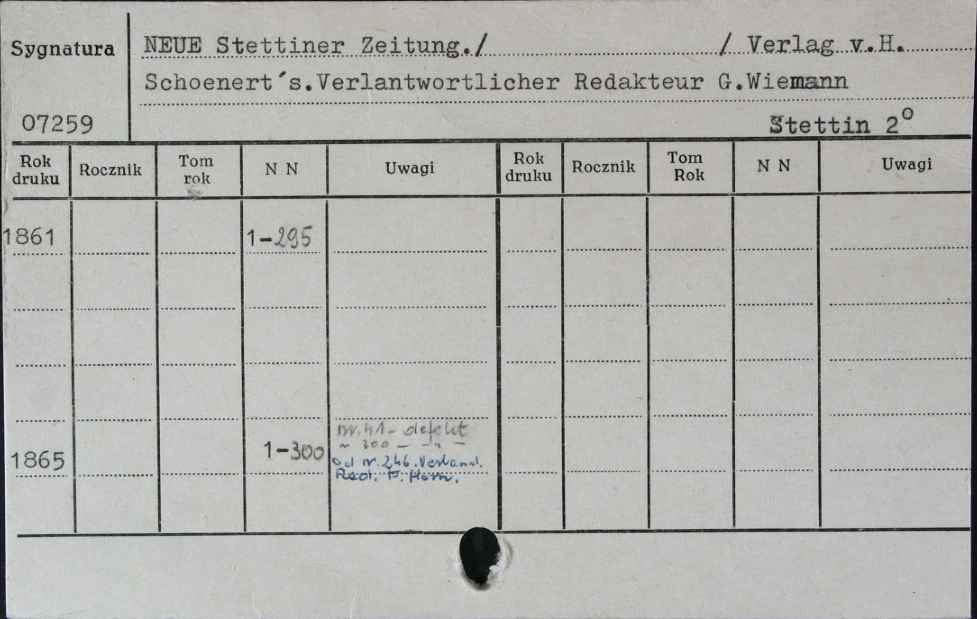 Sygnatura
NEUE Stettiner Zeitung./ / Verlag v.H.
Schoenert´s.Verlantwortlicher Redakteur G.Wiemann
07259
Stettin 2⁰
Rok druku Rocznik Tom rok N N Uwagi Rok druku Rocznik Tom Rok N N Uwagi
1861 1-295
nr. 41 - defekt
~ 300 - -"- -
1865 1-300
Od nr. 246.
Red. F.